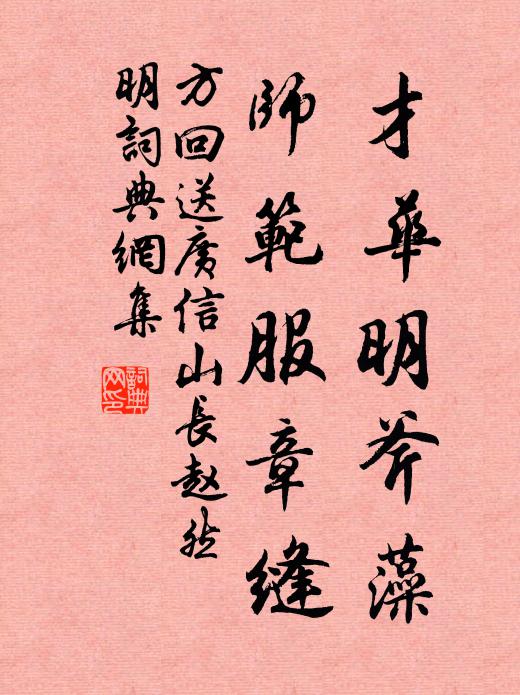 才華明斧藻
師範服章縫
方回送廣信山長赵然
明詞典網集
詞典
网印